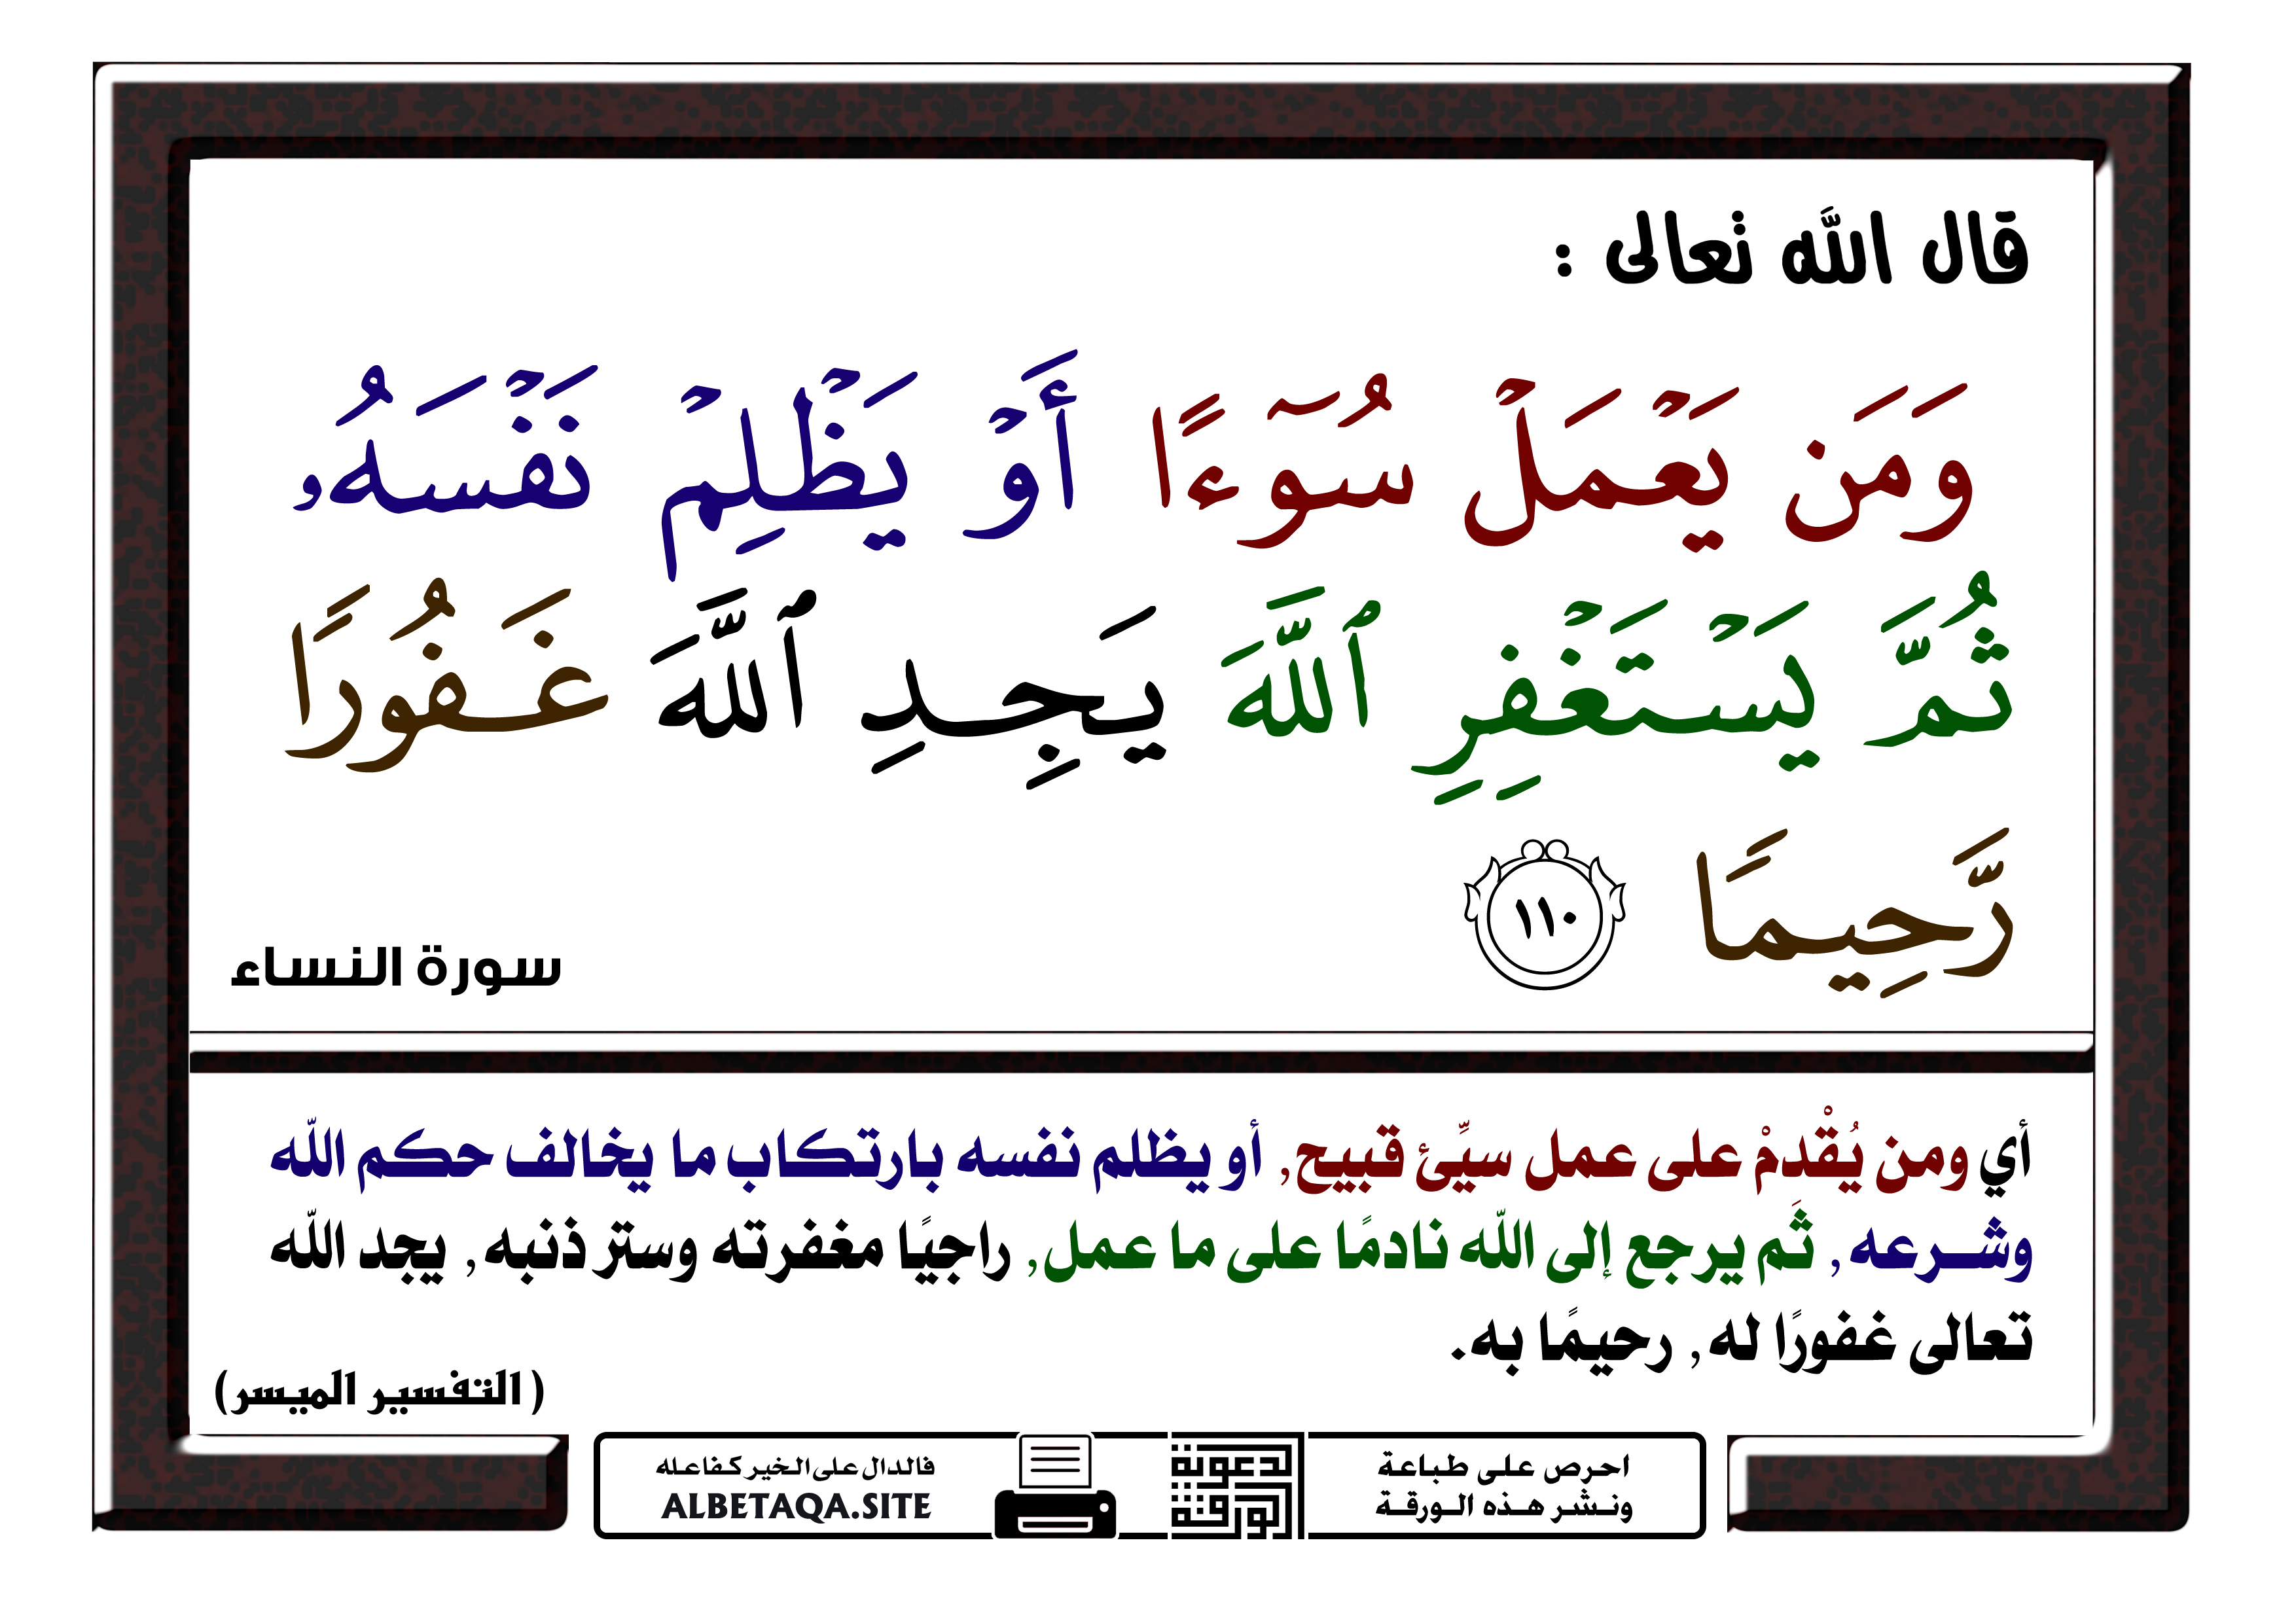 قال الله تعالى :
وَمَن يَعۡمَلۡ سُوٓءًا أَوۡ يَظۡلِمۡ نَفۡسَهُۥ
ثُمَّ يَسۡتَغۡفِرِ ٱللَّهَ يَجِدِ ٱللَّهَ غَفُورًا
رَّحِيمًا ١١٠
سورة النساء
أي ومن يُقْدمْ على عمل سيِّئ قبيح, أو يظلم نفسه بارتكاب ما يخالف حكم الله
وشرعه, ثَم يرجع إلى الله نادمًا على ما عمل, راجيًا مغفرته وستر ذنبه, يجد الله
تعالى غفورًا له, رحيمًا به.
( التفسير الميسر)
احرص على طباعة
ونشر هذه الورقة
الدعوية
الورقة
فالدال على الخير كفاعله
ALBETAQA.SITE